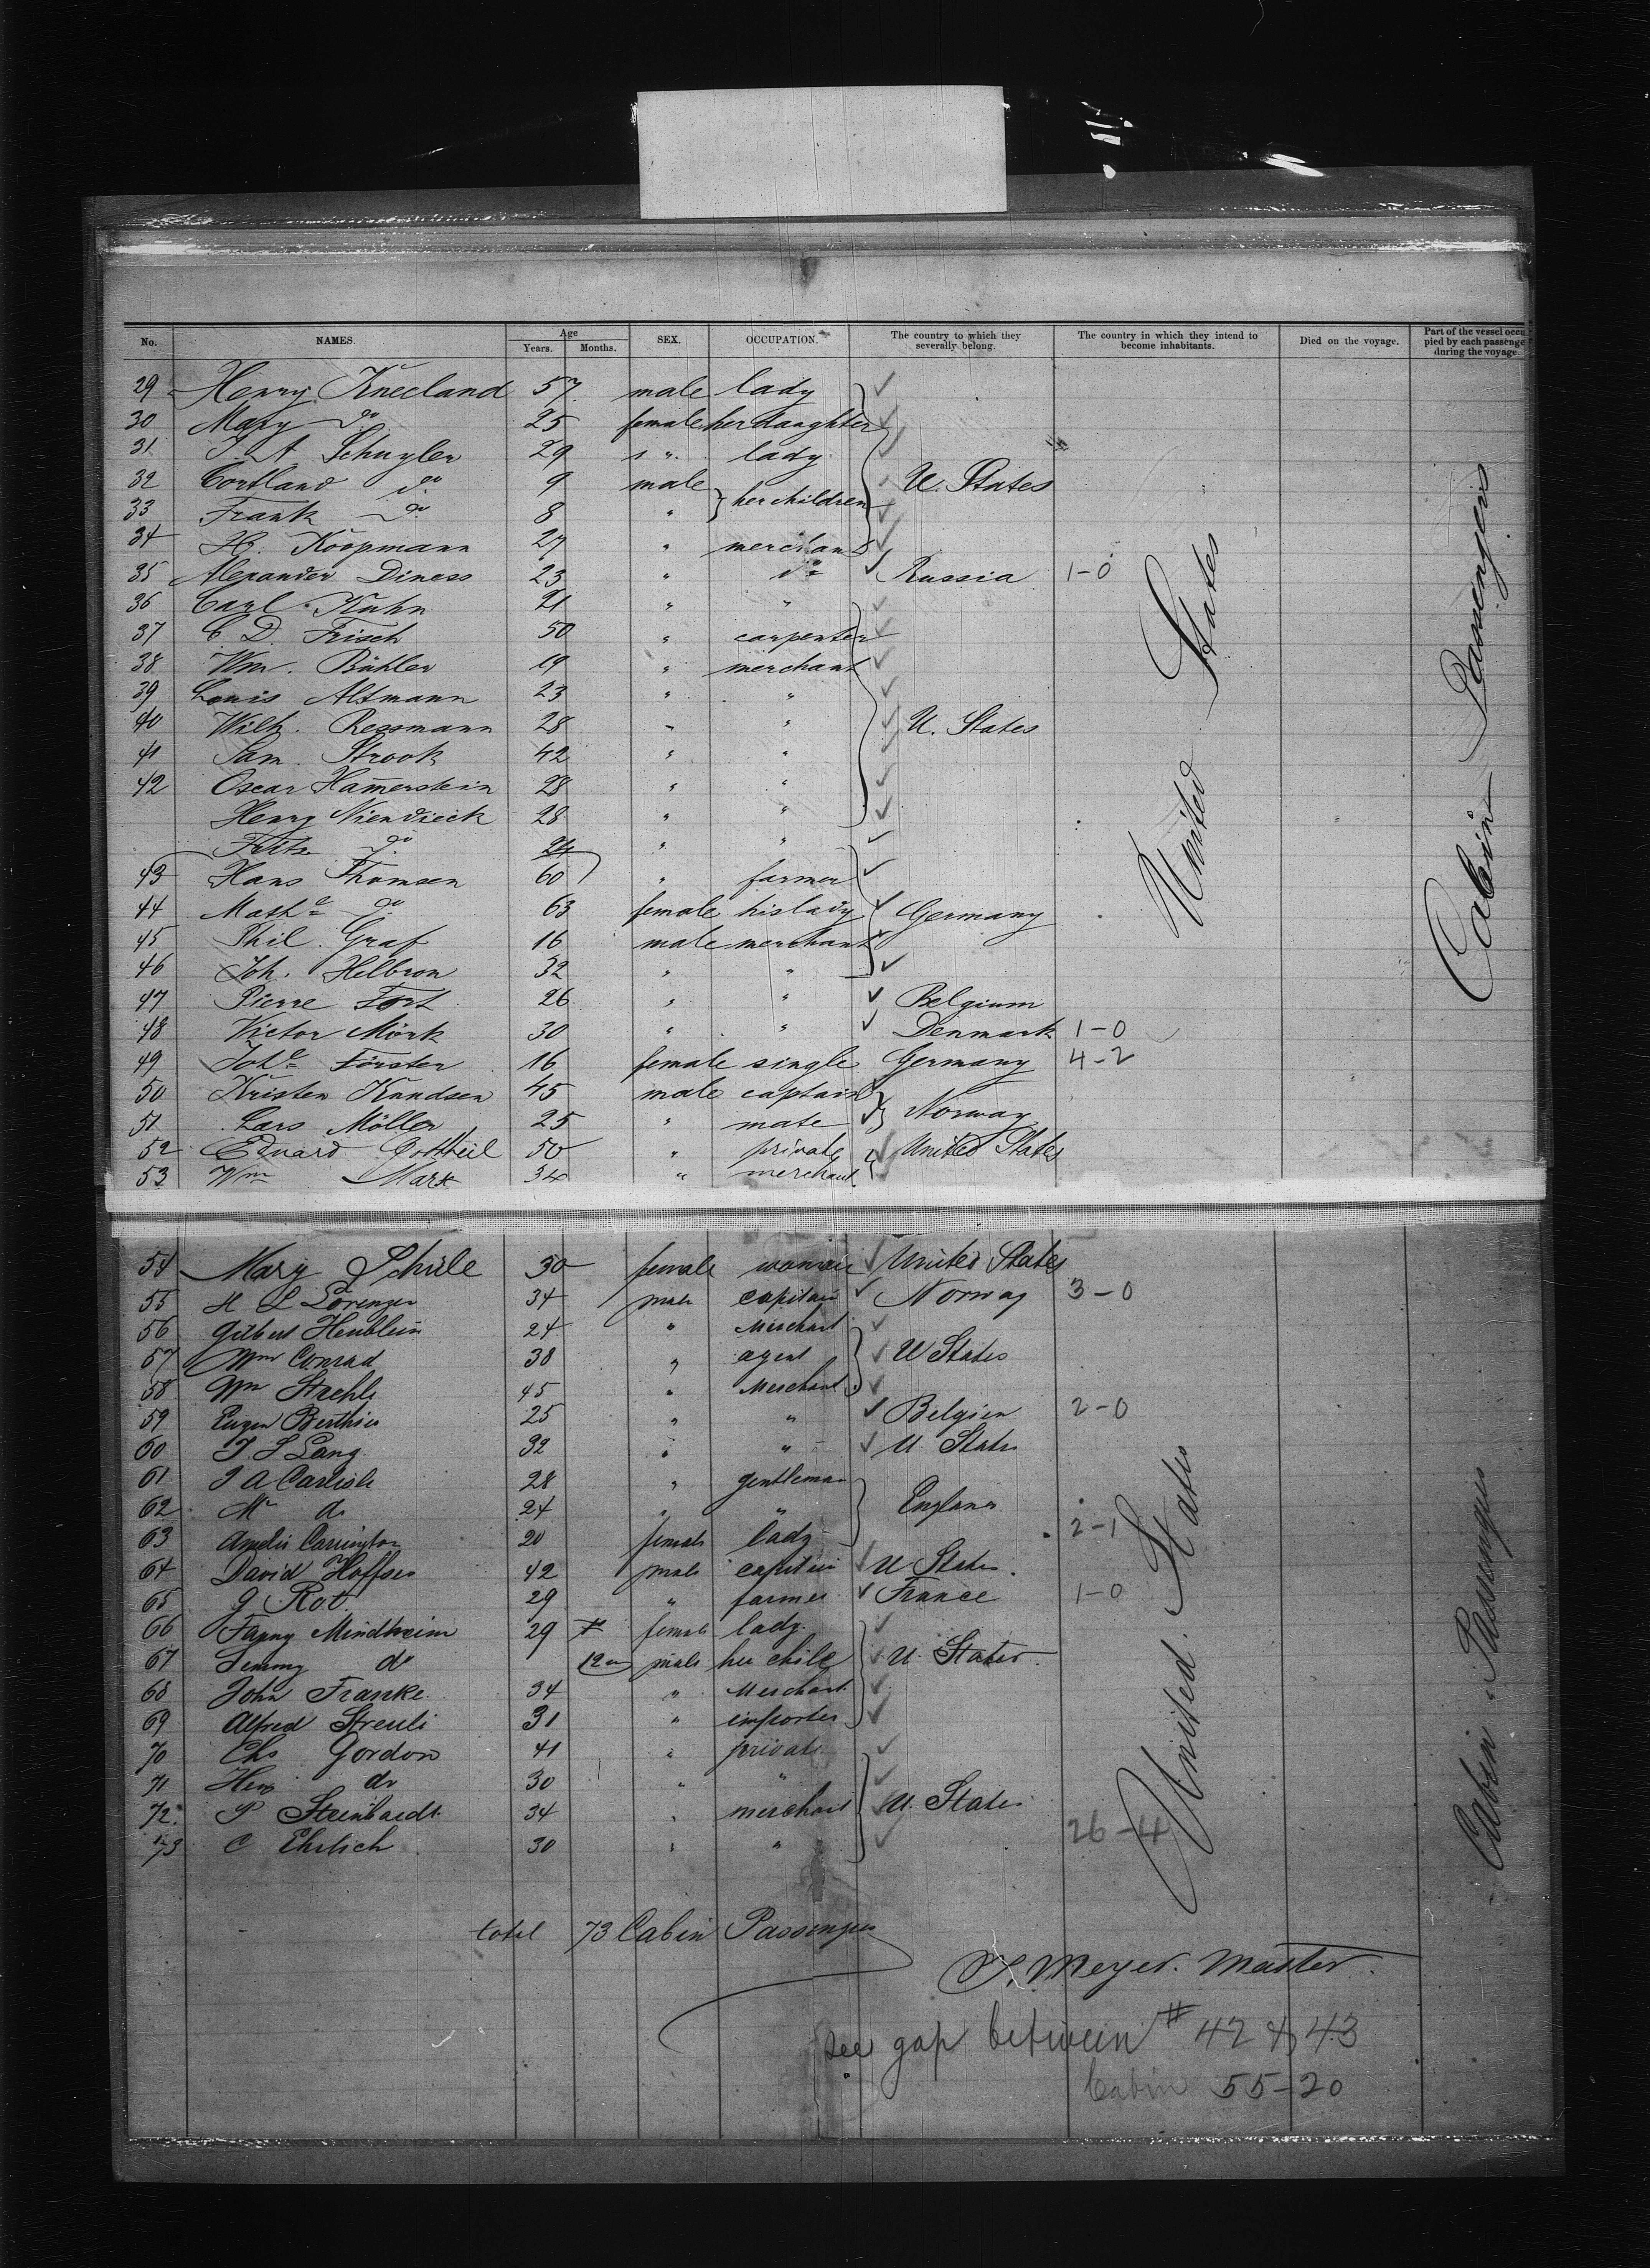 No. NAMES. Age Years. Months. SEX. OCCUPATION. The country to which they severally belong. The country in which they intend to become inhabitants. Died on the voyage. Part of the vessel occupied by each passenger during the voyage.
29 Henry Kneeland 57 male lady
30 Mary do 25 female her daughter
31 J. A Schuyler 29 " lady
32 Cortland do 9 male her children U. States
33 Frank do 8 "
34 H. Koopmann 27 " merchant
35 Alexander Diness 23 " do Russia 1-0
36 Carl Kuhn 21 " "
37 C D. Frisch 50 " carpenter
38 Wm. Bühler 19 " merchant
39 Louis Altmann 23 " "
40 Wilh. Ressmann 28 " " U. States
41 Sam. Strook 42 " "
42 Oscar Hamerstein 28 " "
Henry Niendieck 28 " "
Fritz do 24 " "
43 Hans Thomsen 60 " farmer
44 Mathe do 63 female his lady Germany
45 Phil. Graf 16 male merchant
46 Joh. Helbron 32 " "
47 Pierre Fort 26 " " Belgium
48 Victor Mörk 30 " " Denmark 1-0
49 Johe Förster 16 female single Germany 4-2
50 Kristen Knudsen 45 male captain Norway
51 Lars Möller 25 " mate
52 Eduard Gottheil 50 " private United States
53 Wm Mark 34 " merchant.
United States
Cabin Passengers
54 Mary Schüle 30 female woman United States
55 H L Lorenzen 34 male capitain Norway 3-0
56 Gilbert Heublein 24 " Merchant
57 Wm Conrad 38 " agent U States
58 Wm Strehly 45 " Merchant
59 Eugen Berthier 25 " " Belgien 2-0
60 J. S Lang 32 " " U. States
61 J A Carlisle 28 " gentleman
62 Mr do 24 " " England
63 Amelie Carrington 20 female lady 2-1
64 David Hoffses 42 male capitain U States.
65 G. Rot 29 " farmer France 1-0
66 Fanny Mindheim 29 female lady.
67 Jemmy do 12 m male her child U. States
68 John Franke 34 " Merchant
69 Alfred Streuli 31 " importer
70 Chs Gordon 41 " private
71 Hery do 30 " "
72. P Steinhardt 34 " merchant U. States
73 C Ehrlich 30 " " 26-4
United States
Cabin Passengers
total 73 Cabin Passengers
Meyer. Master.
see gap between # 42 & 43
Cabin 55-20